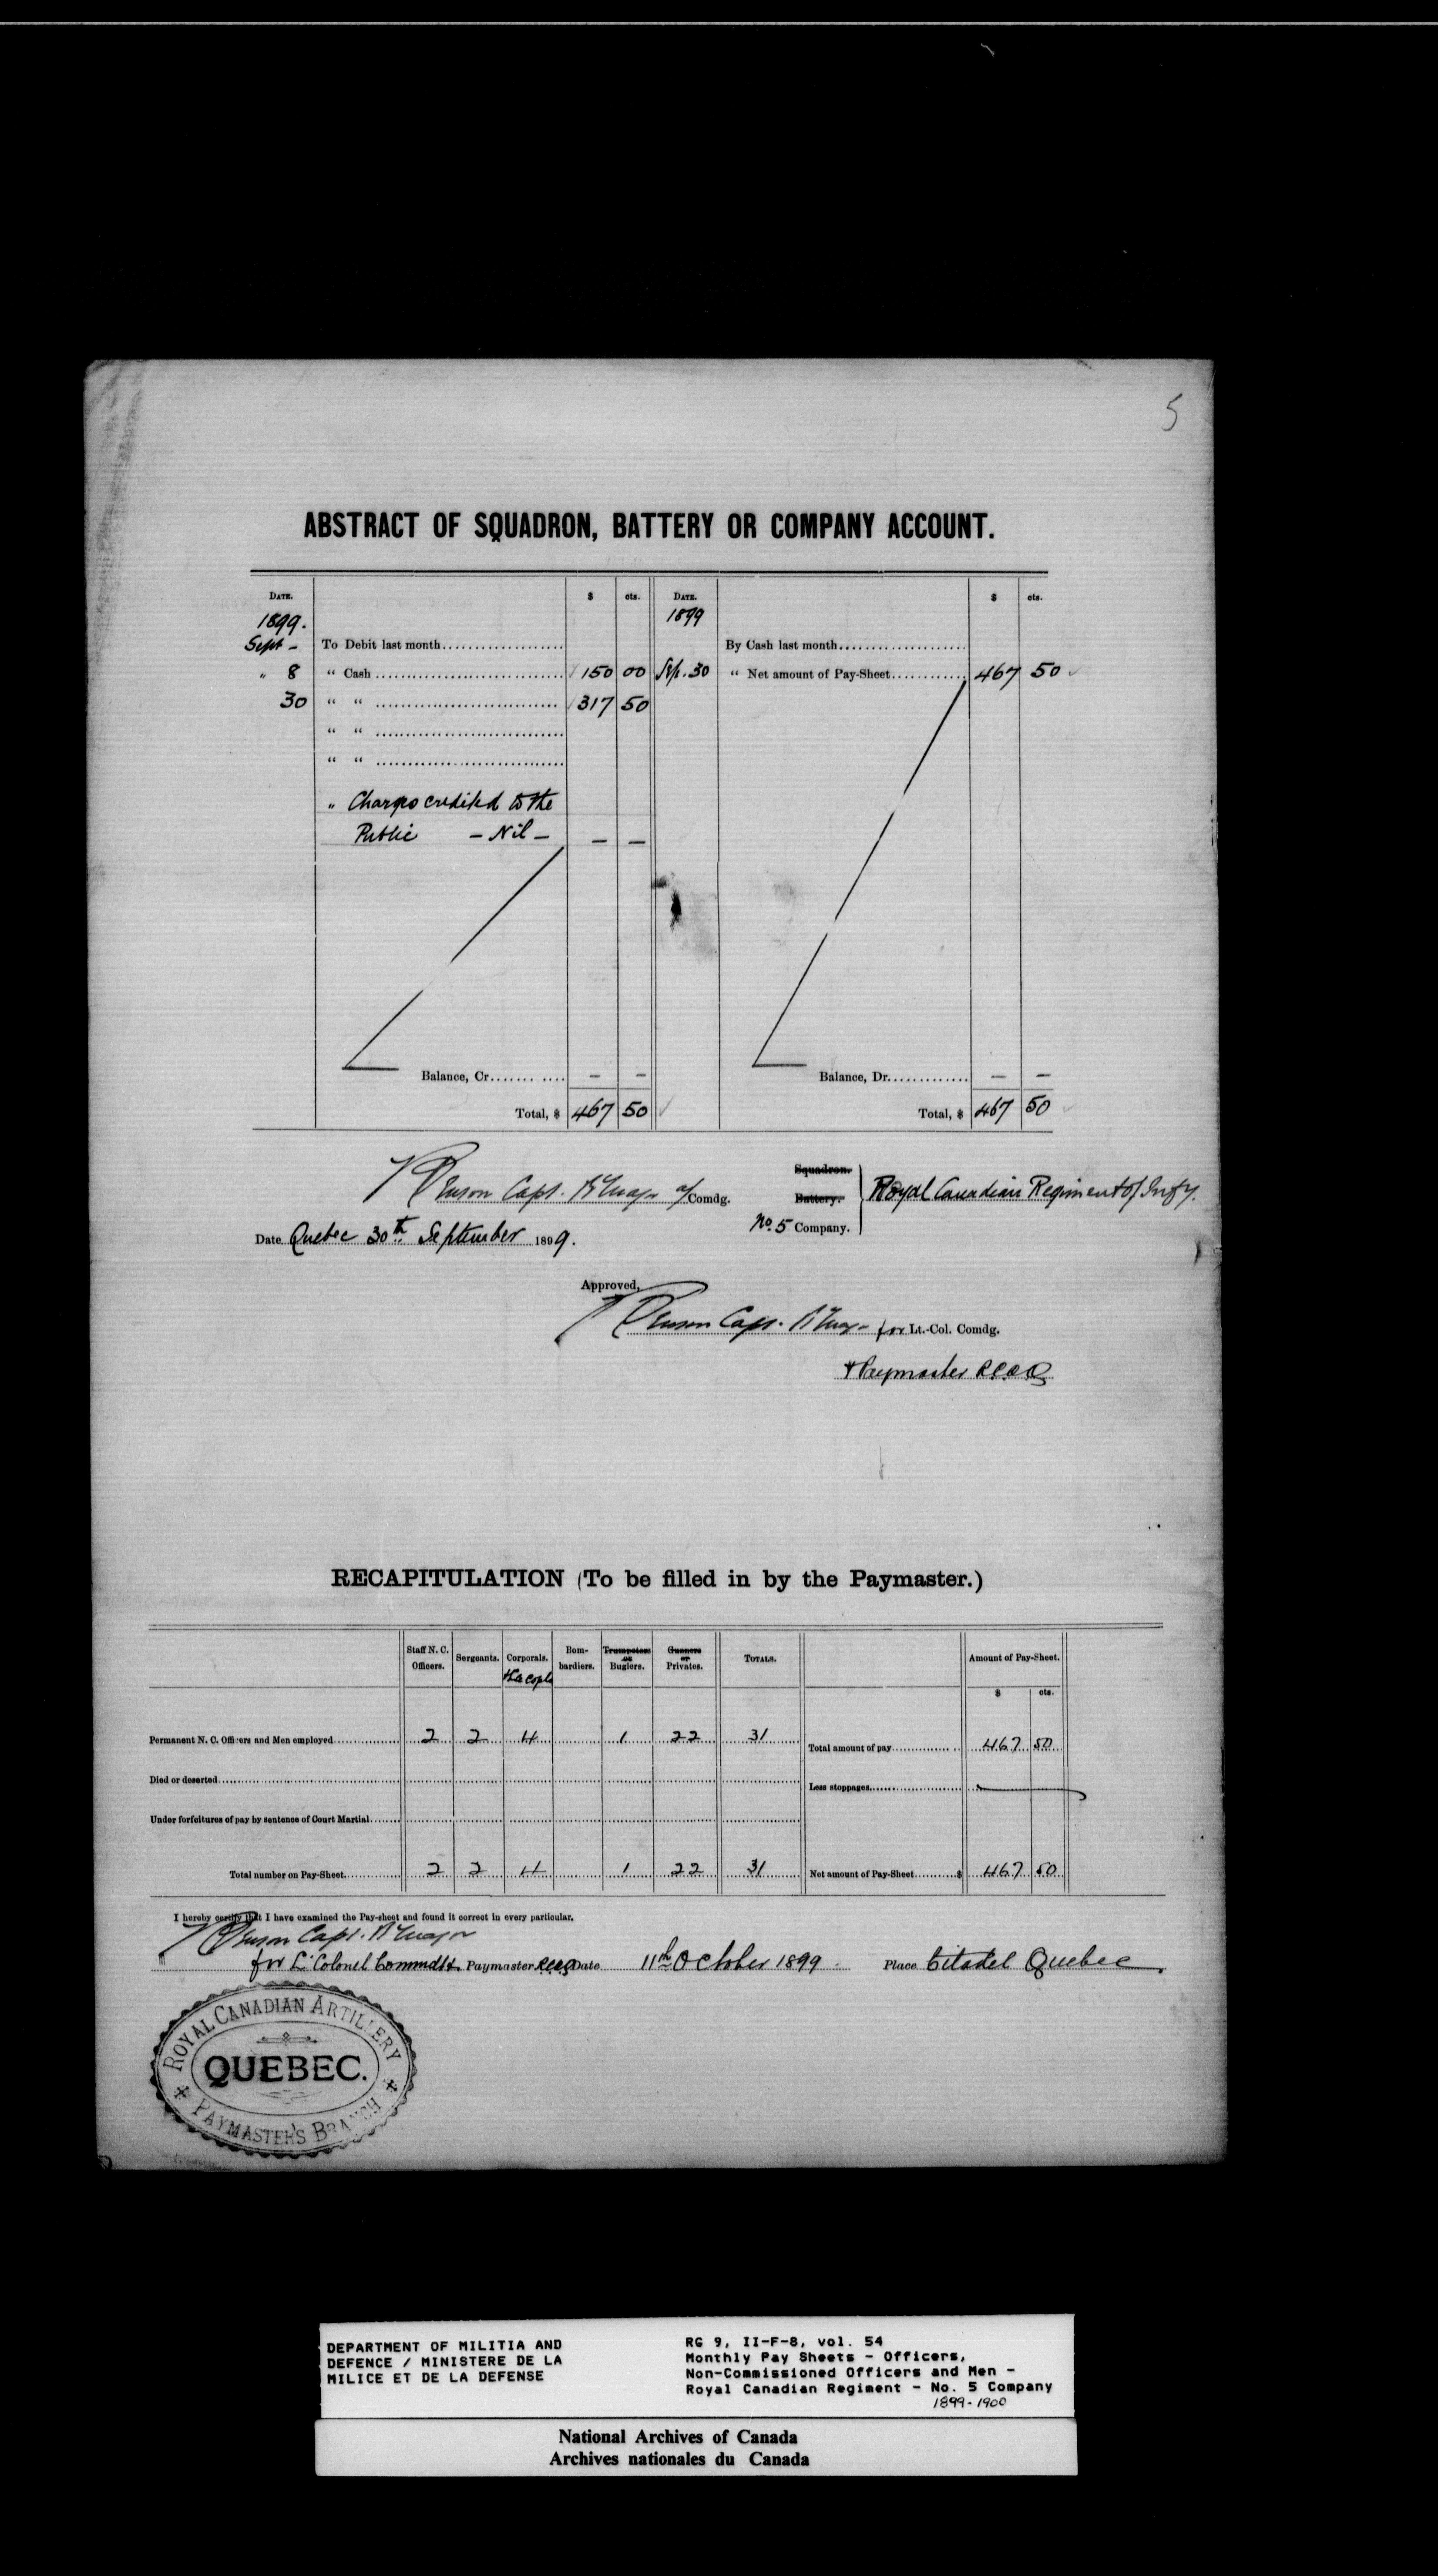 5
ABSTRACT OF SQUADRON, BATTERY OR COMPANY ACCOUNT.
DATE. $ cts. DATE. $ cts.
1899. 1899
Sept - To Debit last month By Cash last month
" 8 " Cash 150 00 Sep. 30 " Net amount of Pay-Sheet 467 50
30 " " 317 50
" "
" "
" Charges credited to the
Public - Nil - — —
Balance, Cr. — — Balance, Dr. — —
Total, $ 467 50 Total, $ 467 50
Capt. Comdg.
Squadron.
Battery.
No. 5 Company.
Royal Canadian Regiment of Infy.
Date Quebec 30th September 1899.
Approved,
Capt. for Lt.-Col. Comdg.
& Paymaster
RECAPITULATION (To be filled in by the Paymaster.)
Staff N. C. Officers. Sergeants. Corporals. Bombardiers. Trumpeters or Buglers. Gunners or Privates. TOTALS. Amount of Pay-Sheet.
$ cts.
Permanent N. C. Officers and Men employed 2 2 4 1 22 31 Total amount of pay 467 50
Died or deserted Less stoppages
Under forfeitures of pay by sentence of Court Martial
Total number on Pay-Sheet 2 2 4 1 22 31 Net amount of Pay-Sheet $ 467 50
I hereby certify that I have examined the Pay-sheet and found it correct in every particular.
Capt.
for Lt Colonel Paymaster Date 11th October 1899 Place Citadel Quebec.
ROYAL CANADIAN ARTILLERY
QUEBEC.
PAYMASTER'S BRANCH
DEPARTMENT OF MILITIA AND
DEFENCE / MINISTERE DE LA
MILICE ET DE LA DEFENSE
RG 9, II-F-8, vol. 54
Monthly Pay Sheets - Officers,
Non-Commissioned Officers and Men -
Royal Canadian Regiment - No. 5 Company
1899-1900
National Archives of Canada
Archives nationales du Canada